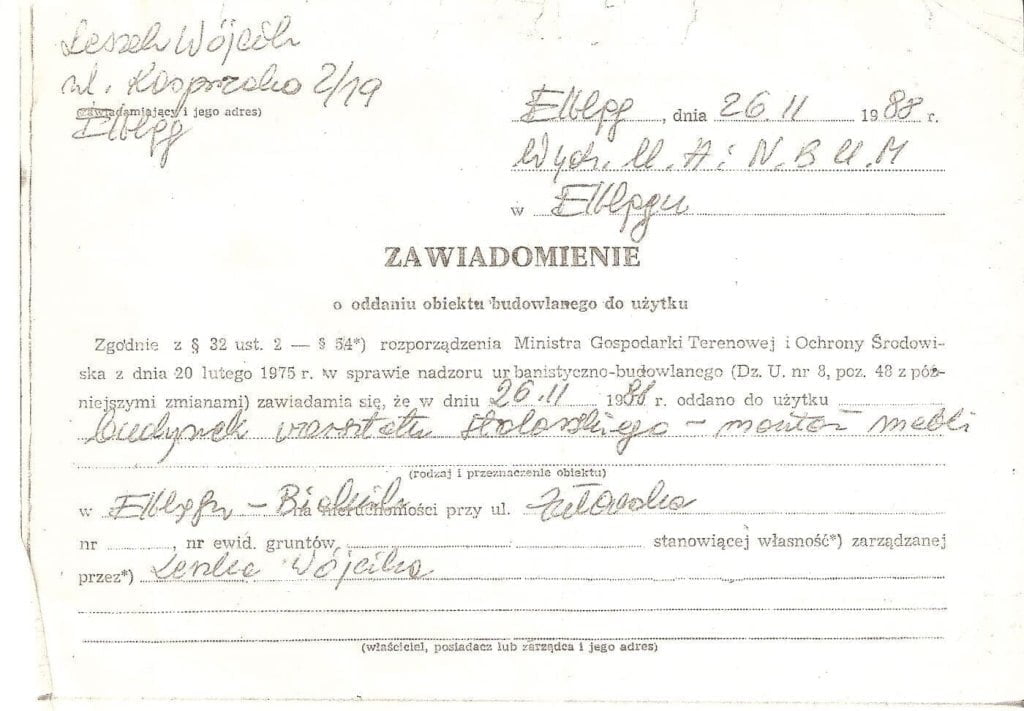 Leszek Wójcik
ul. Kasprzaka 2/19
(zawiadamiający i jego adres)
Elbląg
Elbląg, dnia 26.11 1988 r.
Wydz. U. A i N. B U. M
w Elblągu
ZAWIADOMIENIE
o oddaniu obiektu budowlanego do użytku
Zgodnie z § 32 ust. 2 — § 54*) rozporządzenia Ministra Gospodarki Terenowej i Ochrony Środowi-
ska z dnia 20 lutego 1975 r. w sprawie nadzoru urbanistyczno-budowlanego (Dz. U. nr 8, poz. 48 z póź-
niejszymi zmianami) zawiadamia się, że w dniu 26.11 1988 r. oddano do użytku
budynek warsztatu stolarskiego – montaż mebli
(rodzaj i przeznaczenie obiektu)
w Elblągu – na nieruchomości przy ul. Żuławska
nr , nr ewid. gruntów, stanowiącej własność*) zarządzanej
przez*) Leszka Wójcika
(właściciel, posiadacz lub zarządca i jego adres)